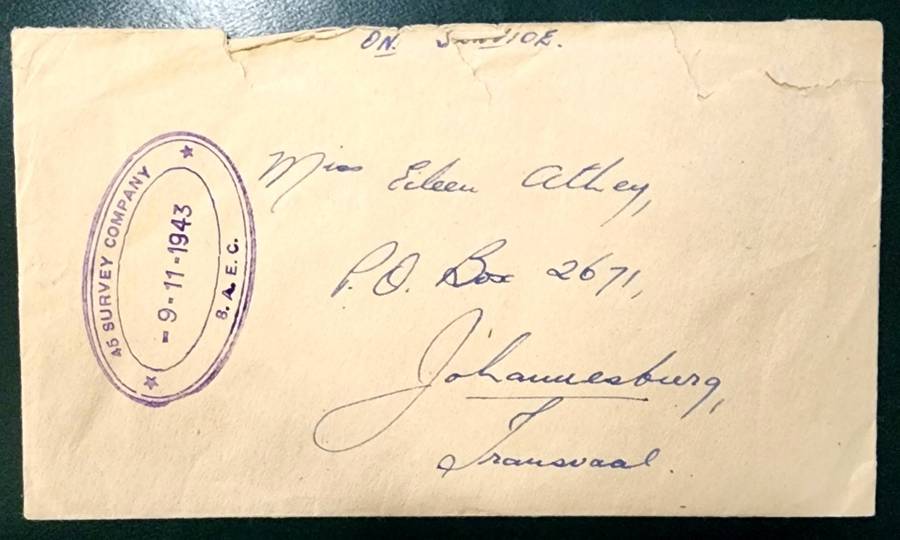 ON SERVICE.
45 SURVEY COMPANY
- 9-11-1943
S. A. E. C.
Miss Eileen Athey,
P.O. Box 2671,
Johannesburg,
Transvaal.